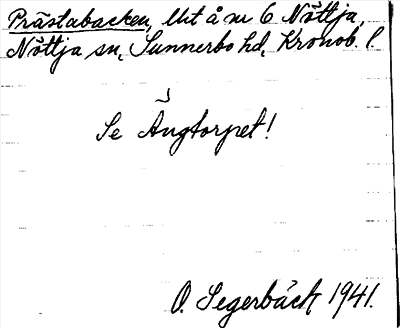 Prästabacken, Utå nr 6 Nöttja,
Nöttja sn, Sunnerbo hd, Kronob. l.
Se Ängtorpet!
O. Segerbäck 1941.